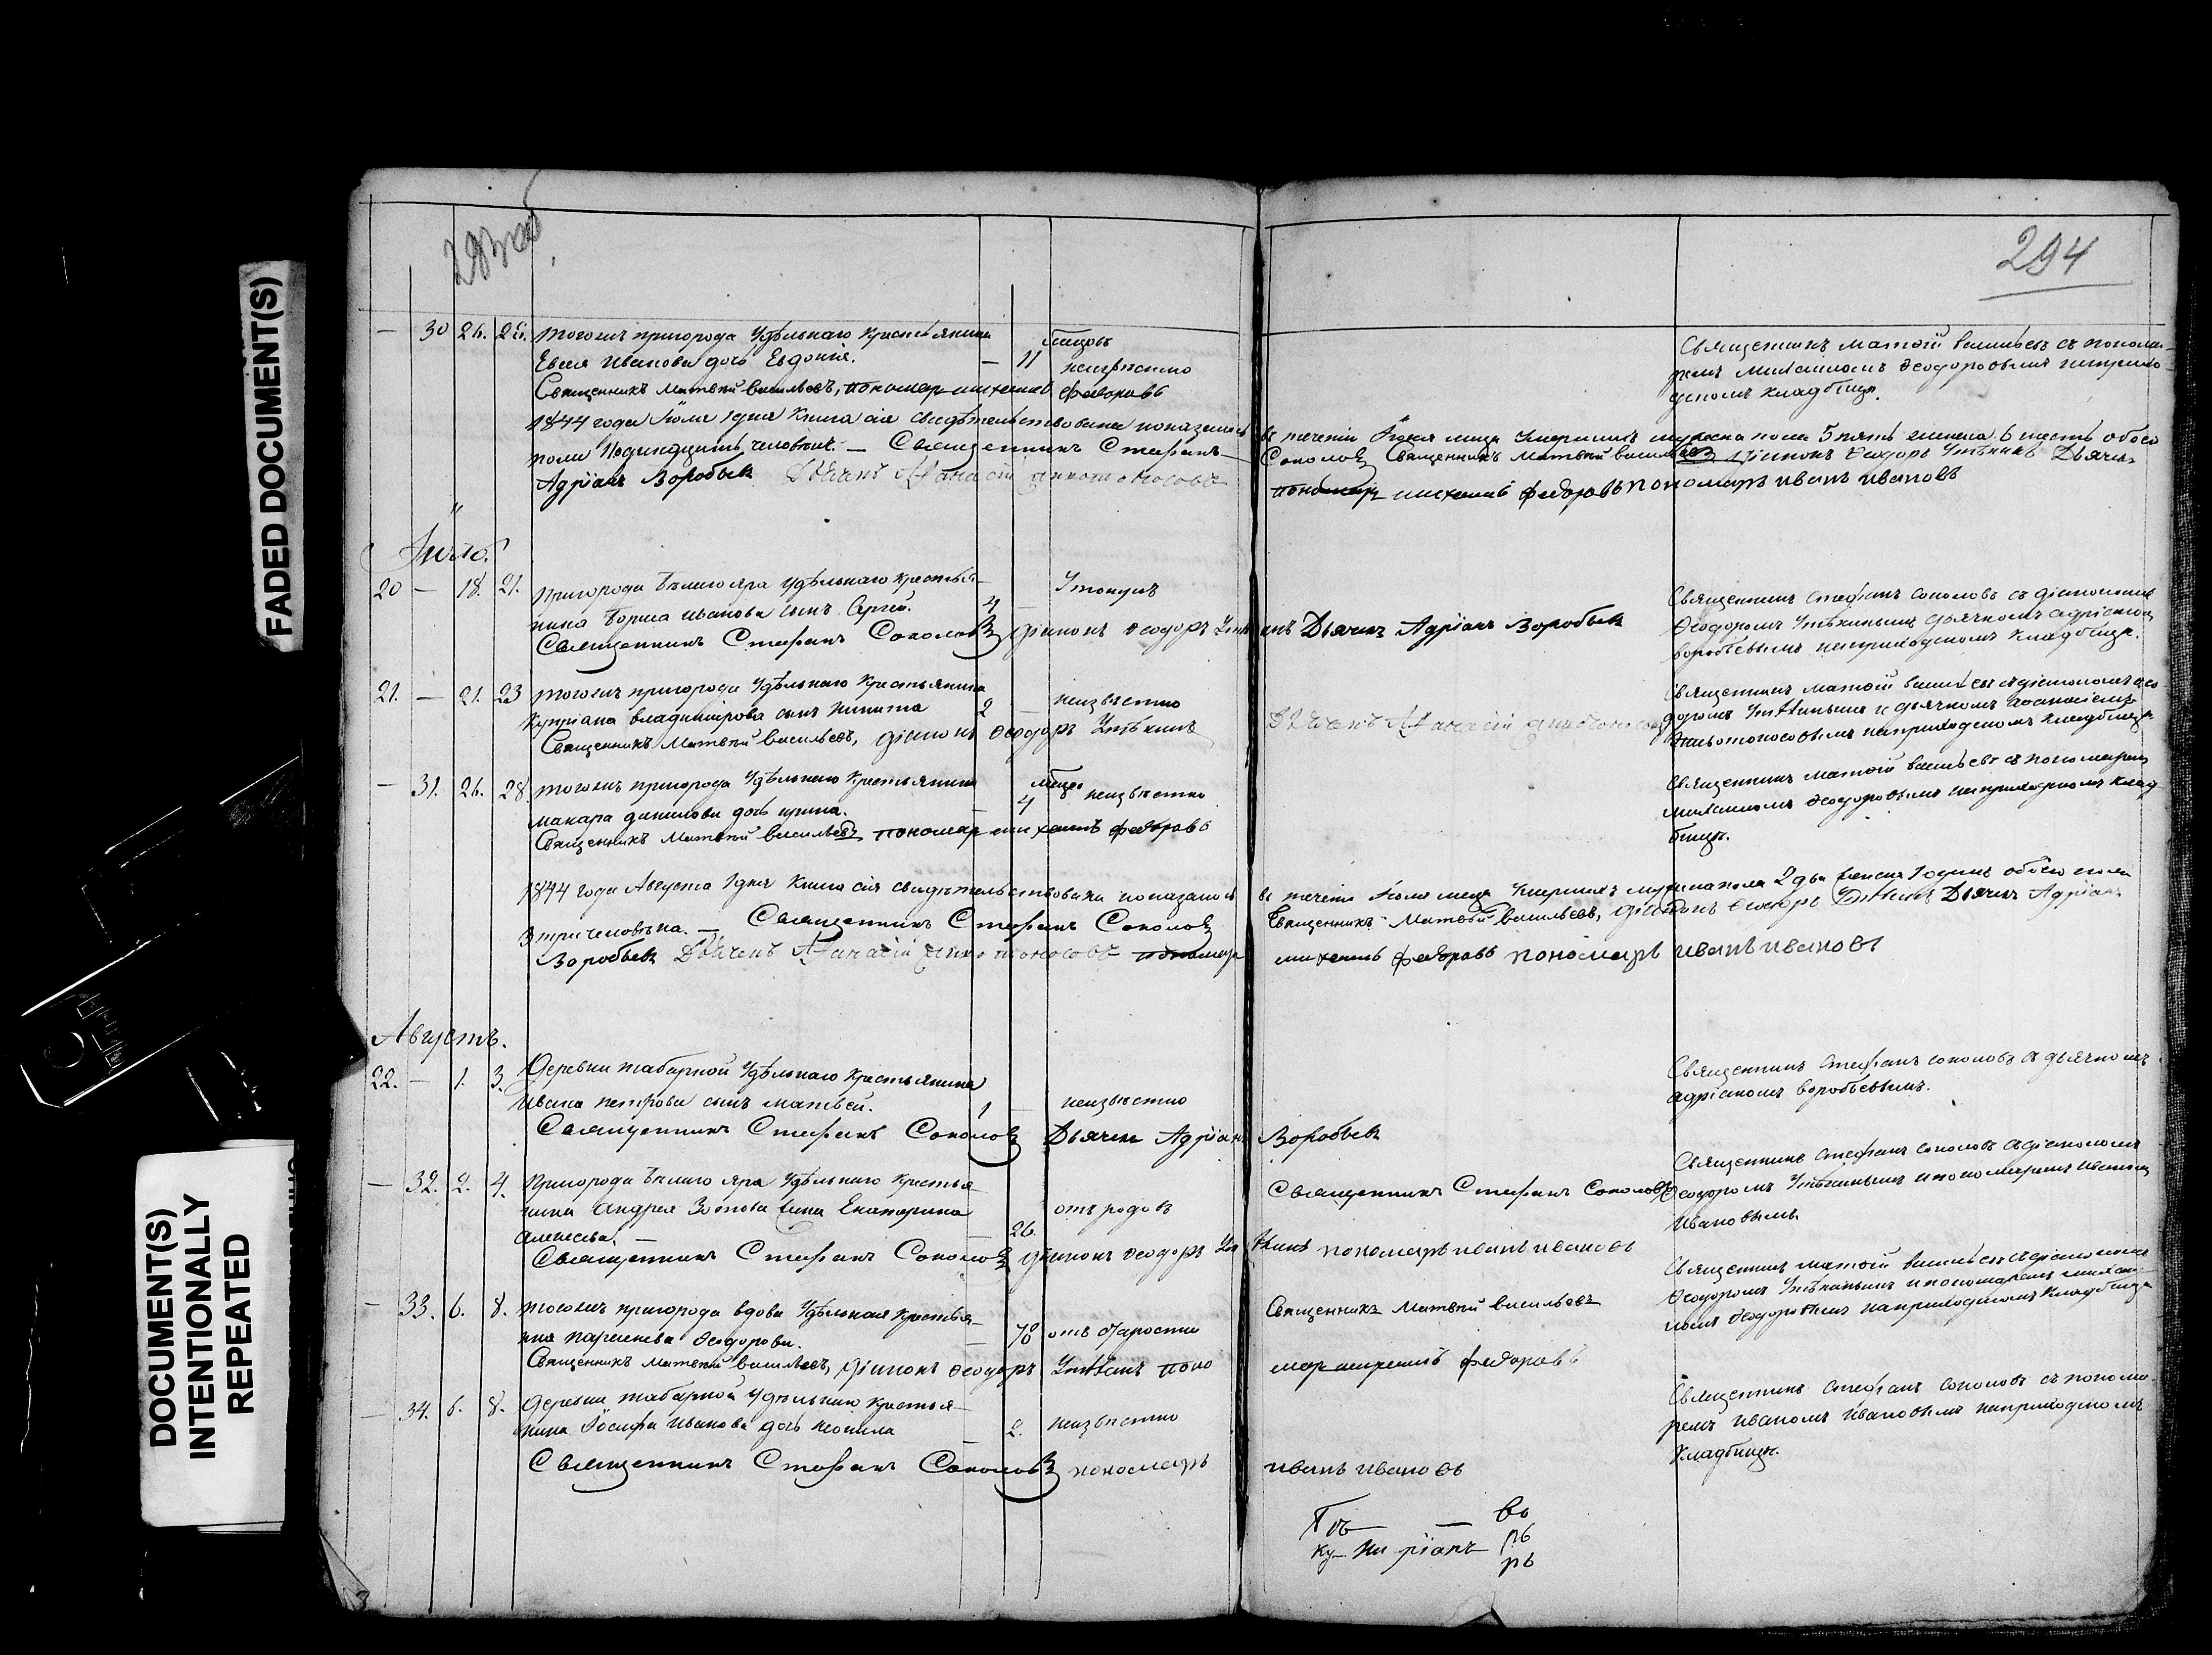 293 об
294
— 30 26. 28. Тогожъ пригорода Удѣльнаго Крестьянина
Евсея Иванова дочь Евдокія. — 11 неизвѣстно
Священникъ Матвѣй Васильевъ, пономар михаилъ федоровъ
Священникъ Матѳій Васильевъ съ понома-
ремъ Михаиломъ Ѳеодоровымъ наприхо-
дскомъ кладбищѣ.
1844 года Іюля 1 дня Книга сія свидѣтельствована показаннаго въ теченіи Іюня мца Умершихъ мужеска пола 5 пять женска 6 шесть обоего
пола 11 одинадцать человѣкъ. — Священникъ Стефанъ Соколовъ Священникъ Матвѣй Васильевъ Діаконъ Ѳеодоръ Утѣхинъ Дьячекъ
Адріанъ Воробьевъ Дьячекъ Аѳанасій пономар михаилъ федоровъ пономарь иванъ ивановъ
Іюль.
20 — 18. 21. Пригорода Бѣлаго яра Удѣльнаго Крестья-
нина Бориса Иванова сынъ Сергей. 4 — Утонулъ
Священникъ Стефанъ Соколовъ Діаконъ Ѳеодоръ Утѣхинъ Дьячекъ Адріанъ Воробьевъ
Священникъ Стефанъ Соколовъ съ діакономъ
Ѳеодоромъ Утѣхинымъ Дьячкомъ Адріаномъ
Воробьевымъ наприходскомъ Кладбищѣ.
21. — 21. 23 Тогожъ пригорода Удѣльнаго Крестьянина
Купріана Владимірова сынъ Никита 2 — неизвѣстно
Священникъ Матвѣй Васильевъ, Діаконъ Ѳеодоръ Утѣхинъ Дьячекъ Аѳанасій
Священникъ Матѳій Васильевъ съ діакономъ Ѳео-
доромъ Утѣхинымъ и дьячкомъ Аѳанасіемъ
наприходскомъ Кладбищѣ
— 31. 26. 28. Тогожъ пригорода Удѣльнаго Крестьянина
Макара Данилова дочь Ирина. — 4 неизвѣстно
Священникъ Матвѣй Васильевъ пономар михаилъ федоровъ
Священникъ Матѳій Васильевъ съ пономаремъ
Михаиломъ Ѳеодоровымъ наприходскомъ Клад-
бищѣ.
1844 года Августа 1 дня Книга сія свидѣтельствована показаннаго въ теченіи Іюля мца Умершихъ муж. пола 2 два женска 1 одинъ обоего пола
3 три человѣка. — Священникъ Стефанъ Соколовъ Священникъ Матвѣй Васильевъ, Діаконъ Ѳеодоръ Утѣхинъ Дьячекъ Адріанъ
Воробьевъ Дьячекъ Аѳанасій пономар михаилъ федоровъ пономарь иванъ ивановъ
Августъ.
22. — 1. 3. Деревни Табарной Удѣльнаго Крестьянина
Ивана Петрова сынъ Матвей. 1 — неизвѣстно
Священникъ Стефанъ Соколовъ Дьячекъ Адріанъ Воробьевъ
Священникъ Стефанъ Соколовъ съ дьячкомъ
Адріаномъ Воробьевымъ.
— 32. 2. 4. Пригорода Бѣлаго Яра Удѣльнаго Крестья-
нина Андрея Зотова жена Екатерина
Алексѣева. — — 26. отъ родовъ
Священникъ Стефанъ Соколовъ
Священникъ Стефанъ Соколовъ Діаконъ Ѳеодоръ Утѣхинъ пономарь иванъ ивановъ
Священникъ Стефанъ Соколовъ съ діакономъ
Ѳеодоромъ Утѣхинымъ и пономаремъ Иваномъ
Ивановымъ.
— 33. 6. 8. Тогожъ пригорода вдова Удѣльная Крестья-
нка Параскева Ѳеодорова. — 70 отъ старости
Священникъ Матвѣй Васильевъ
Священникъ Матвѣй Васильевъ, Діаконъ Ѳеодоръ Утѣхинъ пономар михаилъ федоровъ
Священникъ Матѳій Васильевъ съ діакономъ
Ѳеодоромъ Утѣхинымъ и пономаремъ Михаи-
ломъ Ѳеодоровымъ наприходскомъ Кладбищѣ
— 34. 6. 8. Деревни Табарной Удѣльнаго Крестья-
нина Іосифа Иванова дочь Неонила — 2. неизвѣстно
Священникъ Стефанъ Соколовъ пономарь иванъ ивановъ
Священникъ Стефанъ Соколовъ съ понома-
ремъ Иваномъ Ивановымъ наприходскомъ
Кладбищѣ.
FADED DOCUMENT(S)
DOCUMENT(S)
INTENTIONALLY
REPEATED